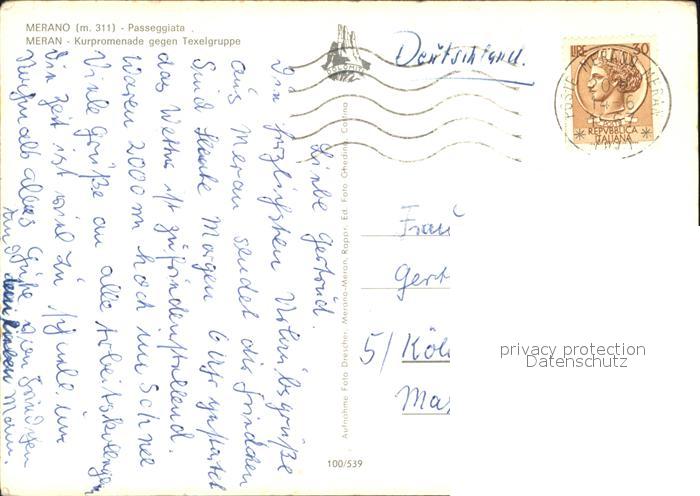 MERANO (m. 311) - Passeggiata
MERAN - Kurpromenade gegen Texelgruppe
DOLOMITI
Deutschland.
LIRE 30
POSTE MERANO MERAN
REPVBBLICA
ITALIANA
Liebe Gertrud.
Die herzlichsten Urlaubsgrüße
aus Meran sendet dir
Sind Heute Morgen 6 Uhr gestartet
das Wetter ist zufriedenstellend.
Waren 2000 m hoch im Schnee
Viele Grüße an alle Arbeitskollegen
die Zeit ist wird zu
Nochmals alles Gute
und Mann.
Aufnahme Foto Drescher, Merano-Meran, Rappr. Ed. Foto Ghedina, Cortina
Frau
Gert
5/ Köl
Ma
privacy protection
Datenschutz
100/539